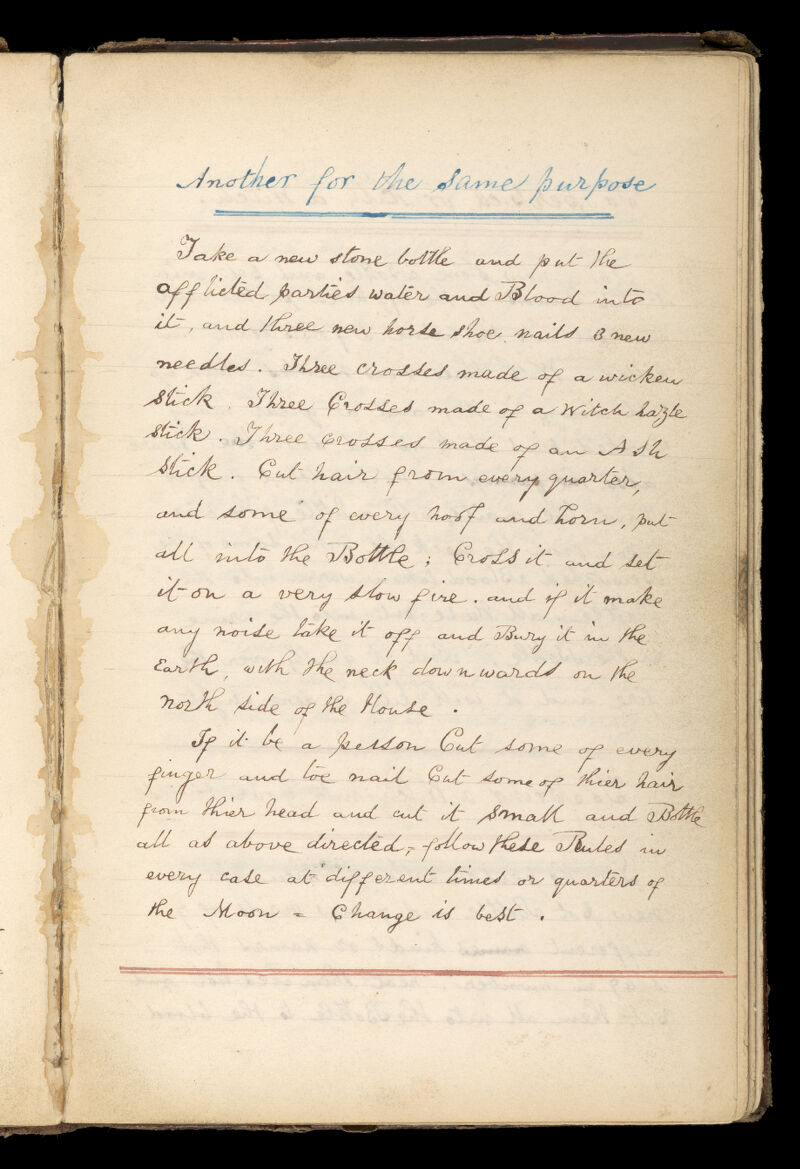 Another for the same purpose
Take a new stone bottle and put the
afflicted parties water and Blood into
it, and three new horse shoe nails 3 new
needles. Three crosses made of a wicken
stick. Three Crosses made of a Witch hazle
stick. Three crosses made of an Ash
stick. Cut hair from every quarter,
and some of every hoof and horn, put
all into the Bottle; Cross it and set
it on a very slow fire. and if it make
any noise take it off and Bury it in the
Earth, with the neck downwards on the
north side of the House.
If it be a person Cut some of every
finger and toe nail Cut some of thier hair
from thier head and cut it small and Bottle
all as above directed, follow these Rules in
every case at different times or quarters of
the Moon = Change is best.